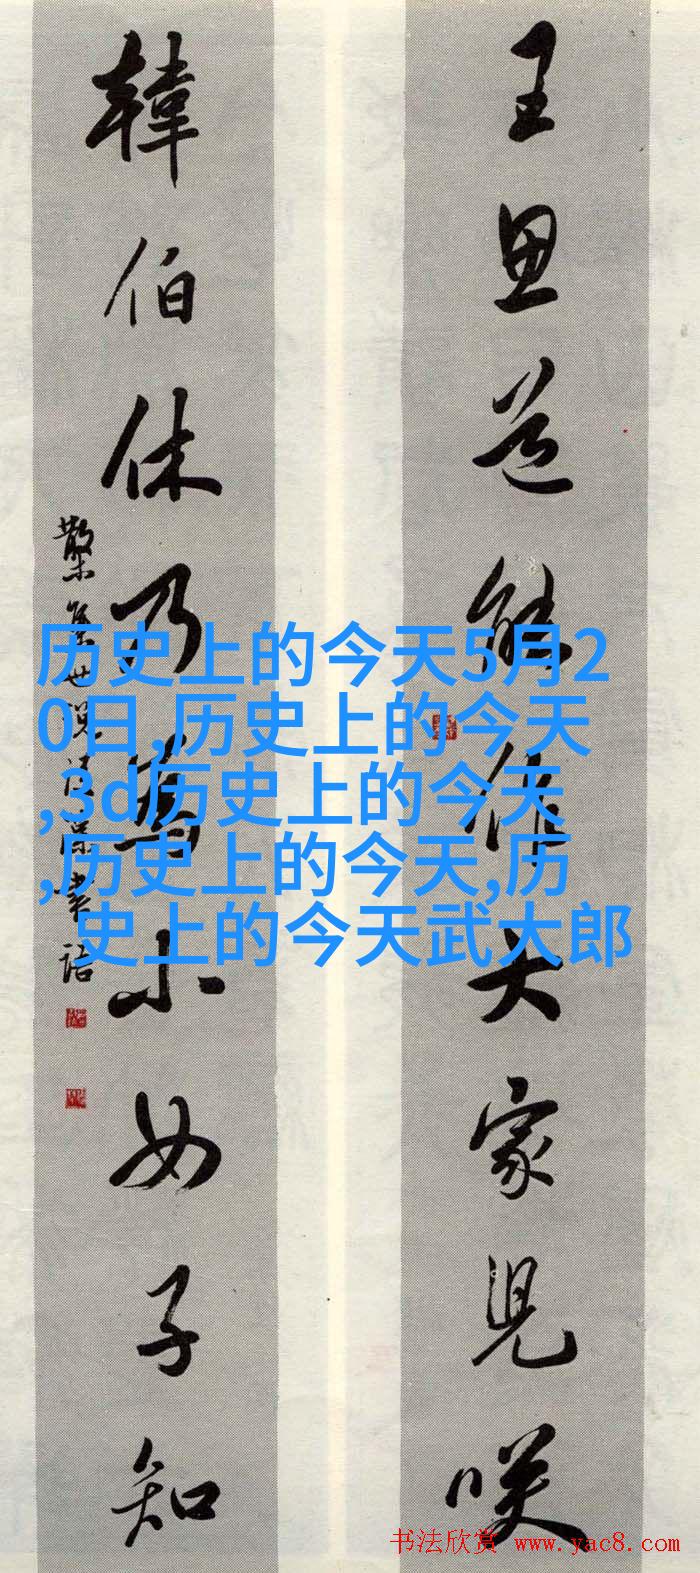 王思道能作大家兒咲
韓伯休乃為小女子知
集世說漢書語
历史上的今天5月2
0日,历史上的今天
,3d历史上的今天
,历史上的今天,历
史上的今天武大郎
书法欣赏 www.yac8.com